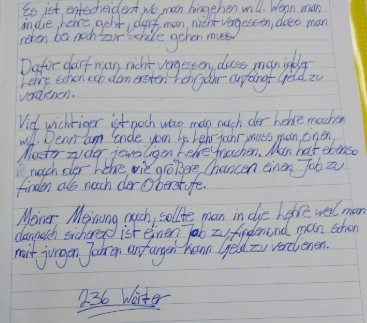 Es ist, entscheident wo man hingehen will. Wenn man
in die, Lehre geht, darf man nicht vergessen, dass man
neben bei noch zur Schule gehen muss.
Dafür darf man nicht vergessen, dass man in der
Lehre schon ab dem ersten Lehrjahr anfängt Geld zu
verdienen.
Viel wichtiger ist noch was man nach der Lehre machen
will. Denn am ende vom Lehrjahr muss man einen,
Master zu der jeweiligen Lehre machen. Man hat ebenso
nach der Lehre, viel größere Chancen einen Job zu
finden als nach der Oberstufe.
Meiner Meinung nach, sollte man in die Lehre weil man
dannach sicherer ist einen Job zu finden und man schon
mit jungen Jahren anfangen kann Geld zu verdienen.
236 Wörter